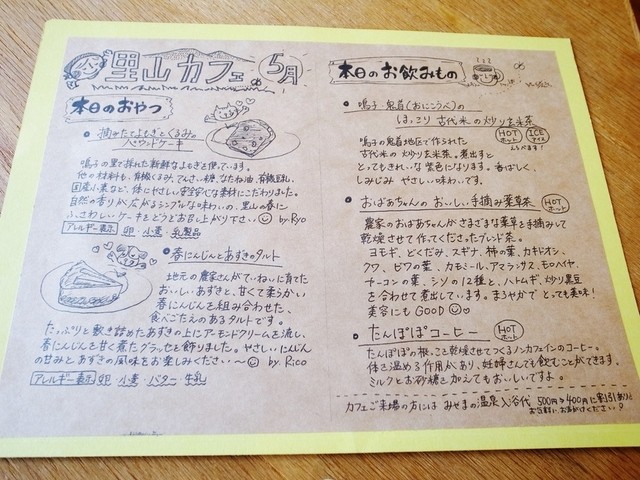 里山カフェ 5月
本日のおやつ
摘みたてよもぎとくるみの
パウンドケーキ
鳴子の里で採れた新鮮なよもぎを使っています。
他の材料も、有機くるみ、てんさい糖、なたね油、有機豆乳、
国産小麦など、体にやさしい安全安心な素材にこだわりました。
自然の香りが広がるシンプルな味わいの、里山の春に
ふさわしいケーキをどうぞお召し上がり下さい by.Ryo
アレルギー表示 卵・小麦・乳製品
春にんじんとあずきのタルト
地元の農家さんがていねいに育てた
おいしいあずきと、甘くて柔らかい
春にんじんを組み合わせた、
食べごたえのあるタルトです。
たっぷりと敷き詰めたあずきの上にアーモンドクリームを流し、
春にんじんを甘く煮たグラッセを飾りました。やさしいにんじん
の甘みとあずきの風味をお楽しみください〜 by.Rico
アレルギー表示 卵・小麦・バター・牛乳
本日のお飲みもの
鳴子・鬼首(おにこうべ)の
ほっこり 古代米の炒り玄米茶
HOT ホット
ICE アイス
えらべます!
鳴子の鬼首地区で作られた
古代米の炒り玄米茶。煮出すと
とってもきれいな紫色になります。香ばしく、
しみじみ やさしい味わいです。
おばあちゃんの おいしい手摘み薬草茶
HOT ホット
農家のおばあちゃんがさまざまな薬草を手摘みして
乾燥させて作ってくださったブレンド茶。
ヨモギ、どくだみ、スギナ、柿の葉、カキドオシ、
クワ、ビワの葉、カモミール、アマランサス、モロヘイヤ、
チコーンの葉、シソの12種と、ハトムギ、炒り黒豆
を合わせて煮出しています。まろやかで とっても美味!
美容にも GOOD
たんぽぽコーヒー
HOT ホット
たんぽぽの根っこを乾燥させてつくるノンカフェインのコーヒー。
体を温める作用があり、妊婦さんでも飲むことができます。
ミルクとお砂糖を加えてもおいしいですよ。
カフェご来場の方には みやまの温泉入浴代 500円→400円に割引あり♪
お気軽に お声がけください♪